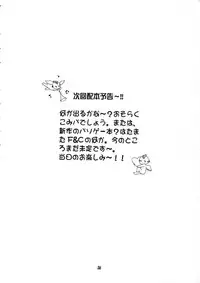 次回配本予告〜!!
何が出るかな〜?おそらく
こみパでしょう。または、
新作のパソゲー本?はたま
た F&Cの何か。今のとこ
ろまだ未定です〜。
当日のお楽しみ〜!!